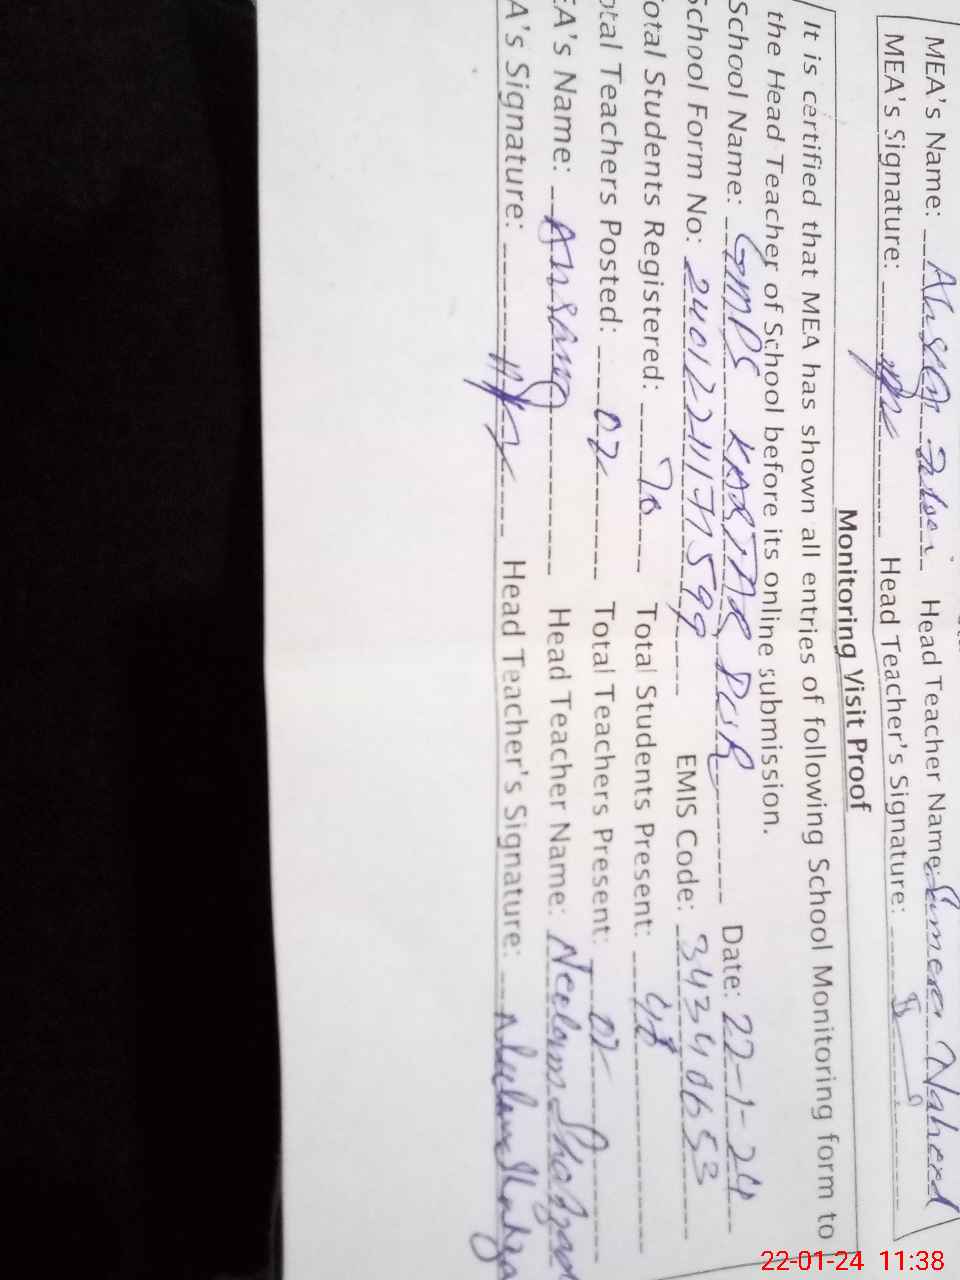 MEA's Name: Head Teacher Name: Samera Naheed
MEA's Signature: Head Teacher's Signature:
Monitoring Visit Proof
It is certified that MEA has shown all entries of following School Monitoring form to
the Head Teacher of School before its online submission.
School Name: GMPS KARTAR PUR Date: 22-1-24
School Form No: EMIS Code: 34340653
otal Students Registered: 70 Total Students Present: 48
otal Teachers Posted: 02 Total Teachers Present: 02
EA's Name: Head Teacher Name: Neelam Shahzad
A's Signature: Head Teacher's Signature: Neelam Shahza
22-01-24 11:38